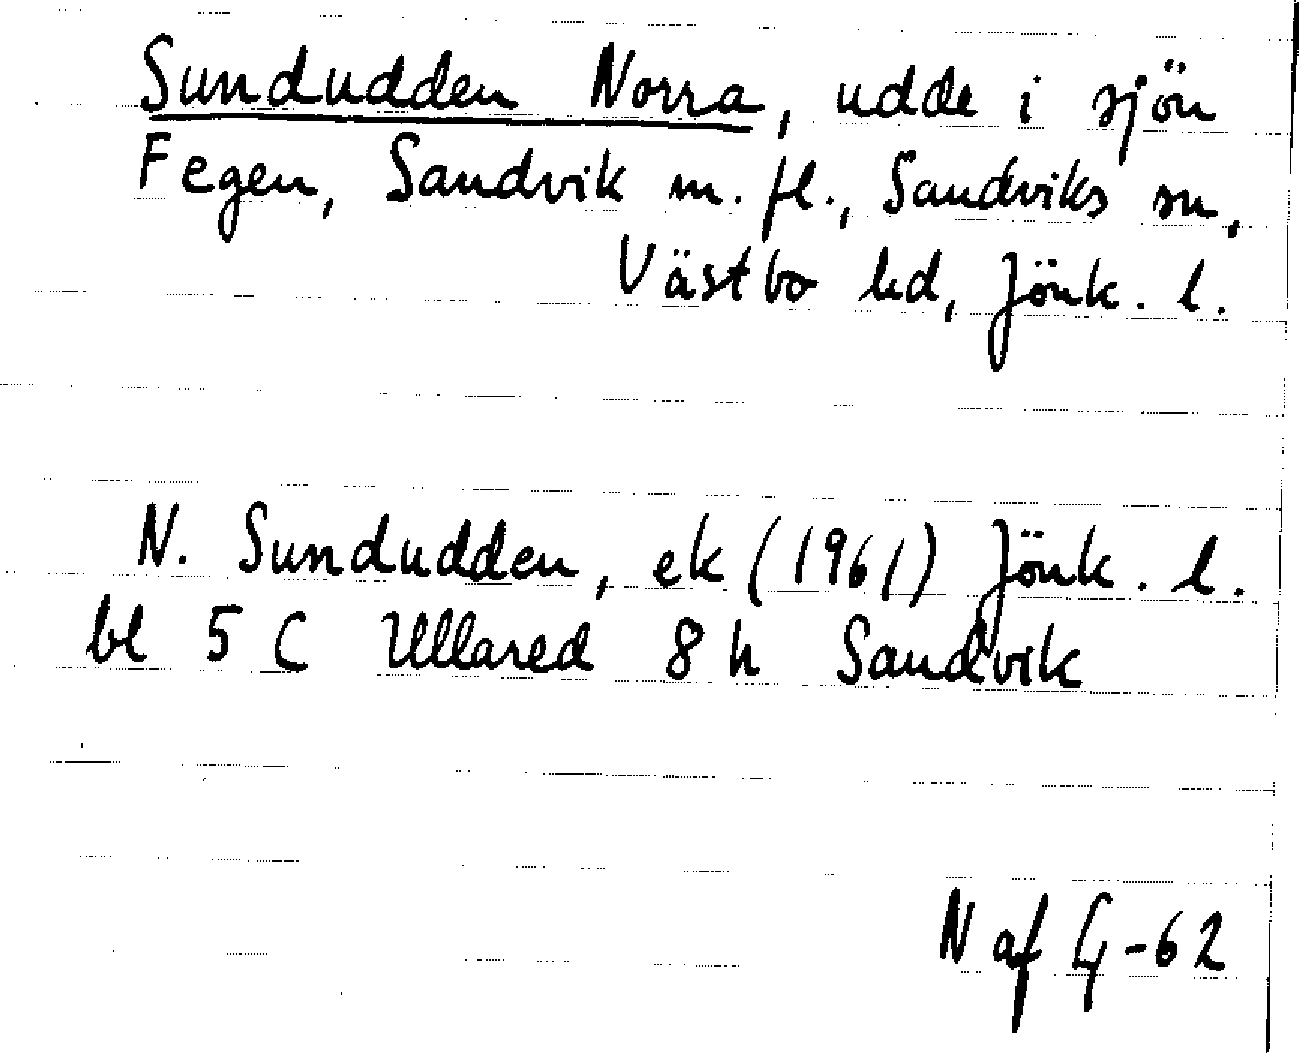 Sundudden Norra, udde i sjön
Fegen, Sandvik m. fl., Sandviks sn,
Västbo hd, Jönk. l.
N. Sundudden, ek (1961) Jönk. l.
bl 5 C Ullared 8 h Sandvik
N af G-62